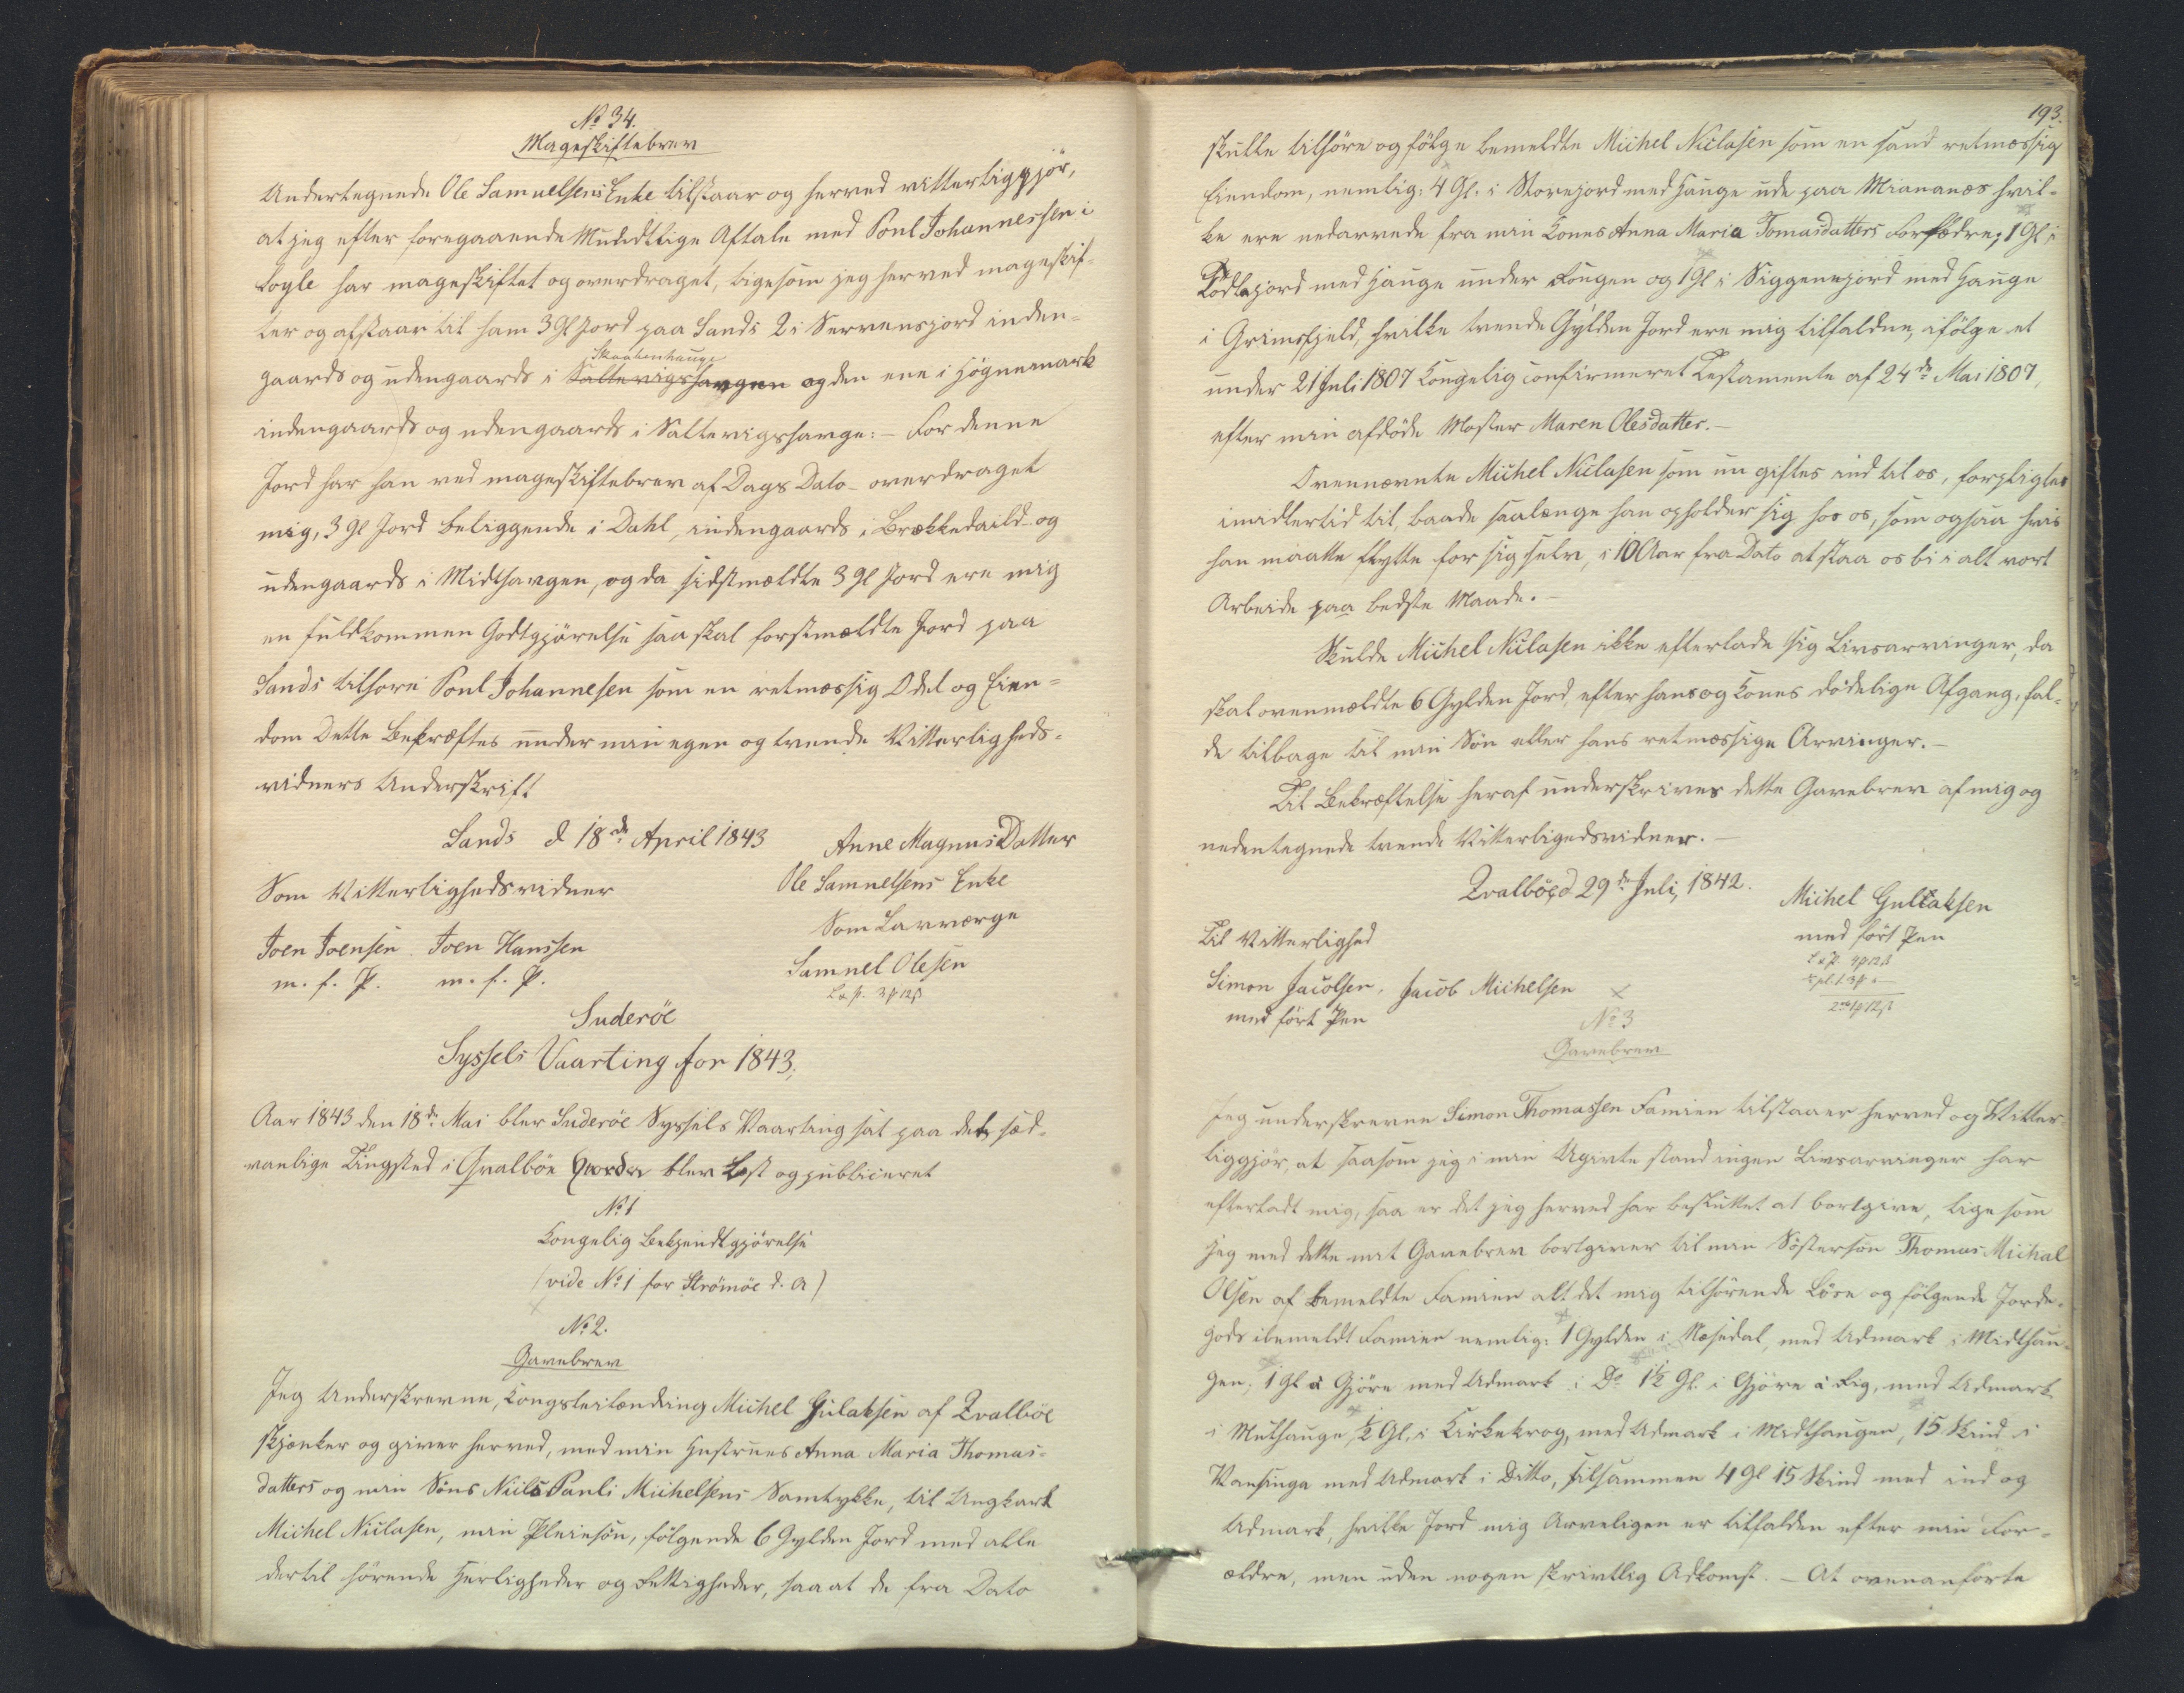 No 34.
Mageskiftebrev
Undertegnede Ole Samuelsens Enke tilstaar og herved vitterliggjör,
at jeg efter foregaaende Mundtlige Aftale med Poul Johannessen i
har mageskiftet og overdraget, ligesom jeg herved mageskif-
ter og afstaar til ham 3 Gl Jord paa Sands 2 i Servensjord inden-
gaards og udengaards i Saltevigshaugen og den ene i Högnemark
Skaalenhauge
indengaards og udengaards i Saltevigshauge: – For denne
Jord har han ved mageskiftebrev af Dags Dato – overdraget
mig, 3 Gl Jord beliggende i Dahl, indengaards i Brekkedaild – og
udengaards i Midthaugen, og da sidstmældte 3 Gl Jord ere mig
en fuldkommen Godtgjörelse saa skal forstmældte Jord paa
Sands tilhöre Poul Johannesen som en retmæssig Odel og Eien=
dom Dette Bekræftes under min egen og tvende Vitterligheds=
vidners Underskrift
Sands d 18de April 1843
Anne MagnusDatter
Ole Samuelsens Enke
Som Vitterlighedsvidner
Som Lavværge
Joen Joensen. Joen Hanssen
m. f. P. m. f. P.
Samuel Olesen
Suderöe
Syssels Vaarting for 1843,
Aar 1843 den 18de Mai blev Suderöe Syssels Vaarting sat paa det sæd-
vanlige Tingsted i Qvalböe hvorda blev Læst og publiceret
No 1
Kongelig Bekjendtgjörelse
(vide No 1 for Strömöe d. A)
No 2.
Gavebrev
Jeg Underskrevne, Kongsleilænding Michel Gulaksen af Qvalböe
skjenker og giver herved, med min Hustrues Anna Maria Thomas-
datters og min Söns Niels Pauli Michelsens Samtykke, til Ungkarl
Michel Niclasen, min Pleiesön, fölgende 6 Gylden Jord med alle
dertil hörende Herligheder og Rettigheder, saa at de fra Dato
193.
skulle tilhöre og fölge bemeldte Michel Niclasen som en sand retmæssig
Eiendom, nemlig: 4 Gl. i Storejord med Hauge ude paa Miananes hvil-
ke ere nedarvede fra min Kones Anna Maria Tomasdatters Forfædre; 1 Gl i
med Hauge under og 1 Gl i Siggenejord med Hauge
i Grimsfjeld, hvilke tvende Gylden Jord ere mig tilfaldne, ifölge et
under 21 Juli 1807 Kongelig confirmeret Testamente af 24de Mai 1807,
efter min afdöde Moster Maren Olesdatter. –
Ovennævnte Michel Niclasen som nu giftes ind til os, forpligtes
imidlertid til, baade saalænge han opholder sig hos os, som ogsaa hvis
han maatte flytte for sig selv, i 10 Aar fra Dato at staa os bi i alt vort
Arbeide paa bedste Maade. –
Skulde Michel Niclasen ikke efterlade sig Livsarvinger, da
skal ovenmældte 6 Gylden Jord, efter hans og Kones dödelige Afgang, fal-
de tilbage til min Sön eller hans retmæssige Arvinger. –
Til Bekræftelse heraf underskrives dette Gavebrev af mig og
nedentegnede tvende Vitterligedsvidner. –
Qvalböe d 29de Juli, 1842.
Michel Gullaksen
med fört Pen
Til Vitterlighed
Simon Jacobsen, Jacob Michelsen
med fört Pen
No 3
Gavebrev
Jeg underskrevne Simon Thomassen Famien tilstaaer herved og Vitter
liggjör, at saasom jeg i min Ugivte stand ingen Livsarvinger har
efterladt mig, saa er det jeg herved har besluttet at bortgive, lige som
jeg med dette mit Gavebrev bortgiver til min Söstersön Thomas Michal
Olsen af bemeldte Famien alt det mig tilhörende Löse og fölgende Jorde-
gods ibemeldt Famien nemlig: 1 Gylden i Næsedal, med Udmark i Midthau-
gen, 1 Gl à Gjöre med Udmark i Do 1½ Gl. i Gjöre à Ryg, med Udmark
i Midthauge, ½ Gl. i Kirkekrog, med Udmark i Midthaugen, 15 Skind i
med Udmark i Ditto, tilsammen 4 Gl 15 Skind med ind og
Udmark, hvilke Jord mig Arveligen er tilfalden efter min For-
ældre, men uden nogen skrivtlig Adkomst. – At ovenanförte